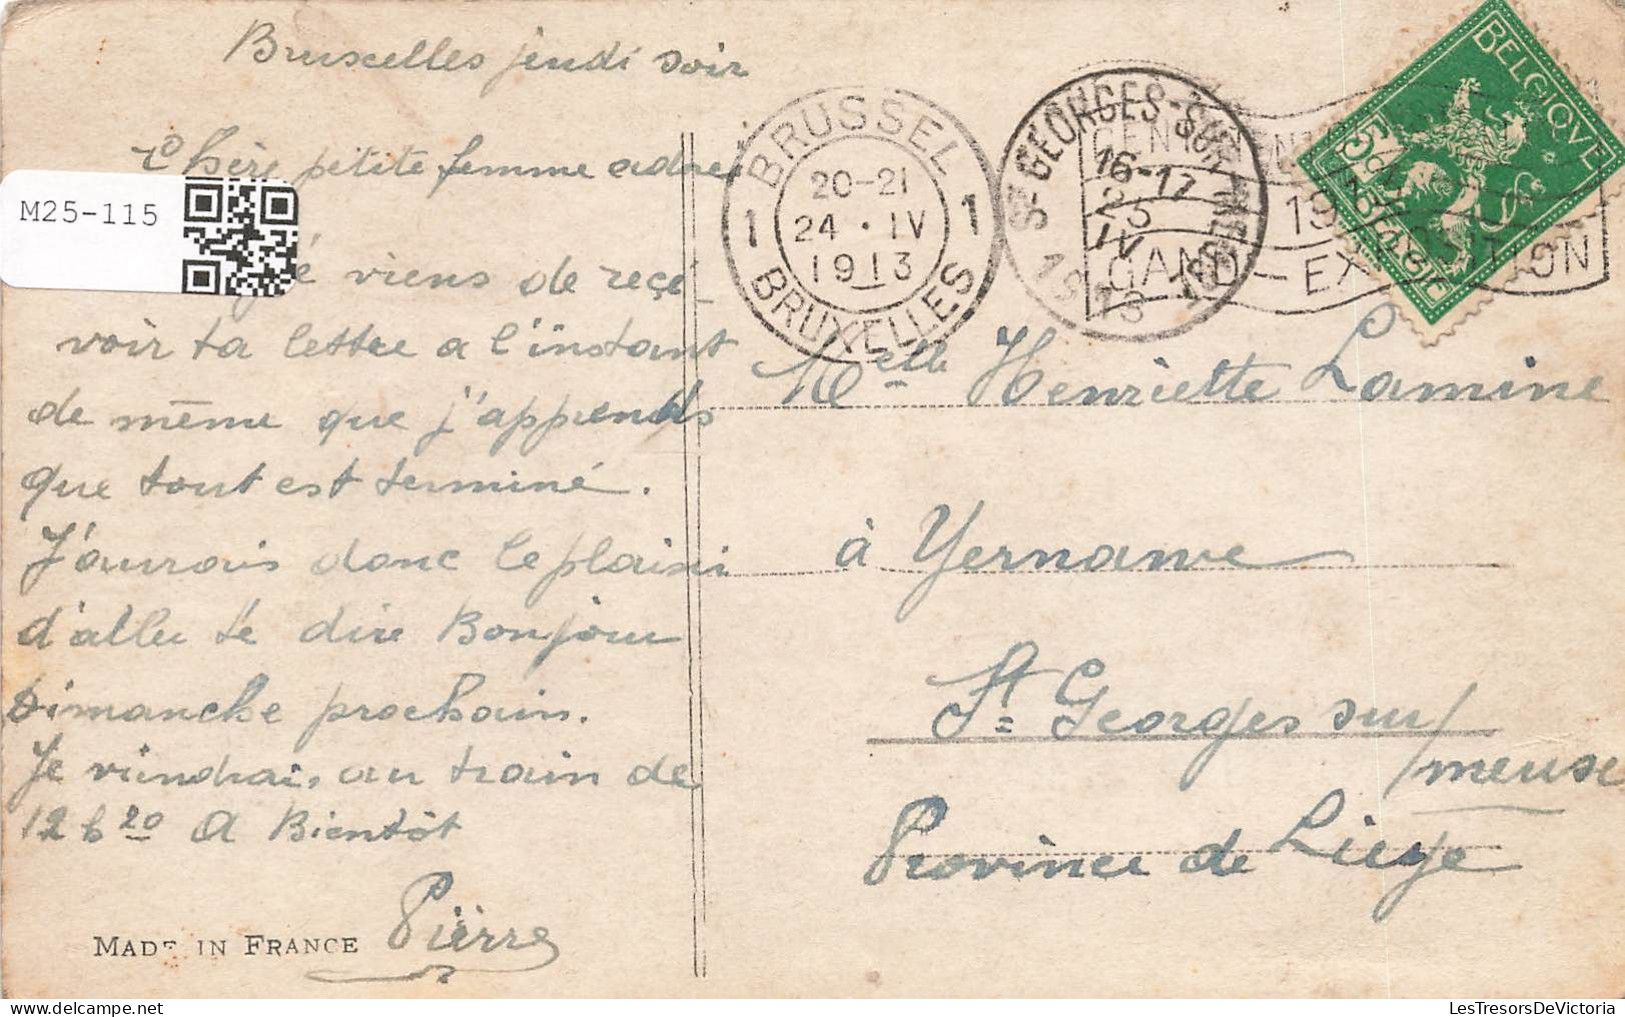 Bruxelles jeudi soir
Chère petite femme adorée
viens de reçe-
voir ta lettre a l'instant
de même que j'apprends
que tout est terminé.
J'aurrais donc le plaisir
d'aller te dire Bonjour
Dimanche prochain.
Je viendrai, au train de
12 h 20 A Bientôt
Pierre
MADE IN FRANCE
M25-115
1 BRUSSEL 1
20-21
24 · IV
1913
BRUXELLES
ST GEORGES-SUR-MEUSE
16-17
25
IV
1913
GAND - EXPOSITION
BELGIQVE
5c
BELGIE
Melle Henriette Lamine
à Yernawe
St Georges sur
meuse
Province de Liege
LesTresorsDeVictoria.com